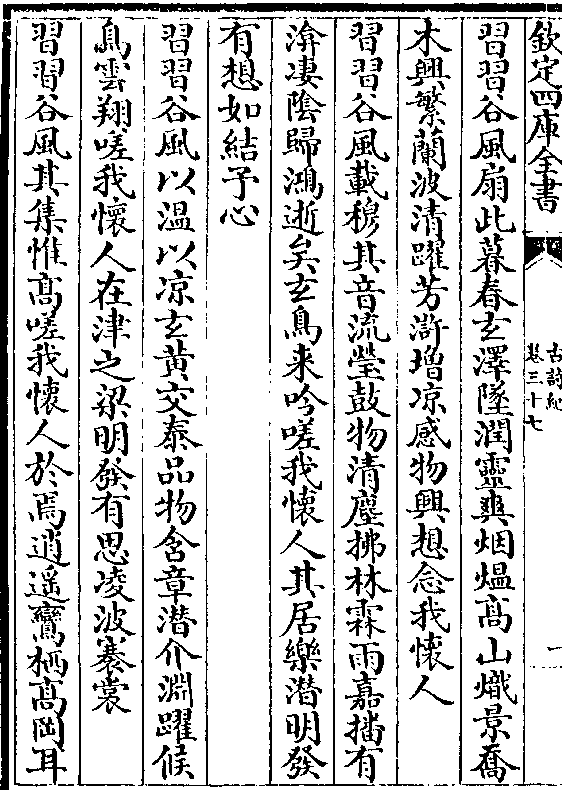 欽定四庫全書
古詩紀
卷三十七
一
習習谷風扇此暮春玄澤墜潤靈爽烟煴高山熾景喬
木興繁蘭波清躍芳滸増凉感物興想念我懷人
習習谷風載穆其音流瑩鼓物清塵拂林霖雨嘉播有
渰凄陰歸鴻逝矣玄鳥来吟嗟我懷人其居樂潛明發
有想如結予心
習習谷風以温以凉玄黄交泰品物含章潜介淵躍候
鳥雲翔嗟我懷人在津之梁明發有思凌波褰裳
習習谷風其集惟高嗟我懷人於焉逍遥鸞栖高岡耳